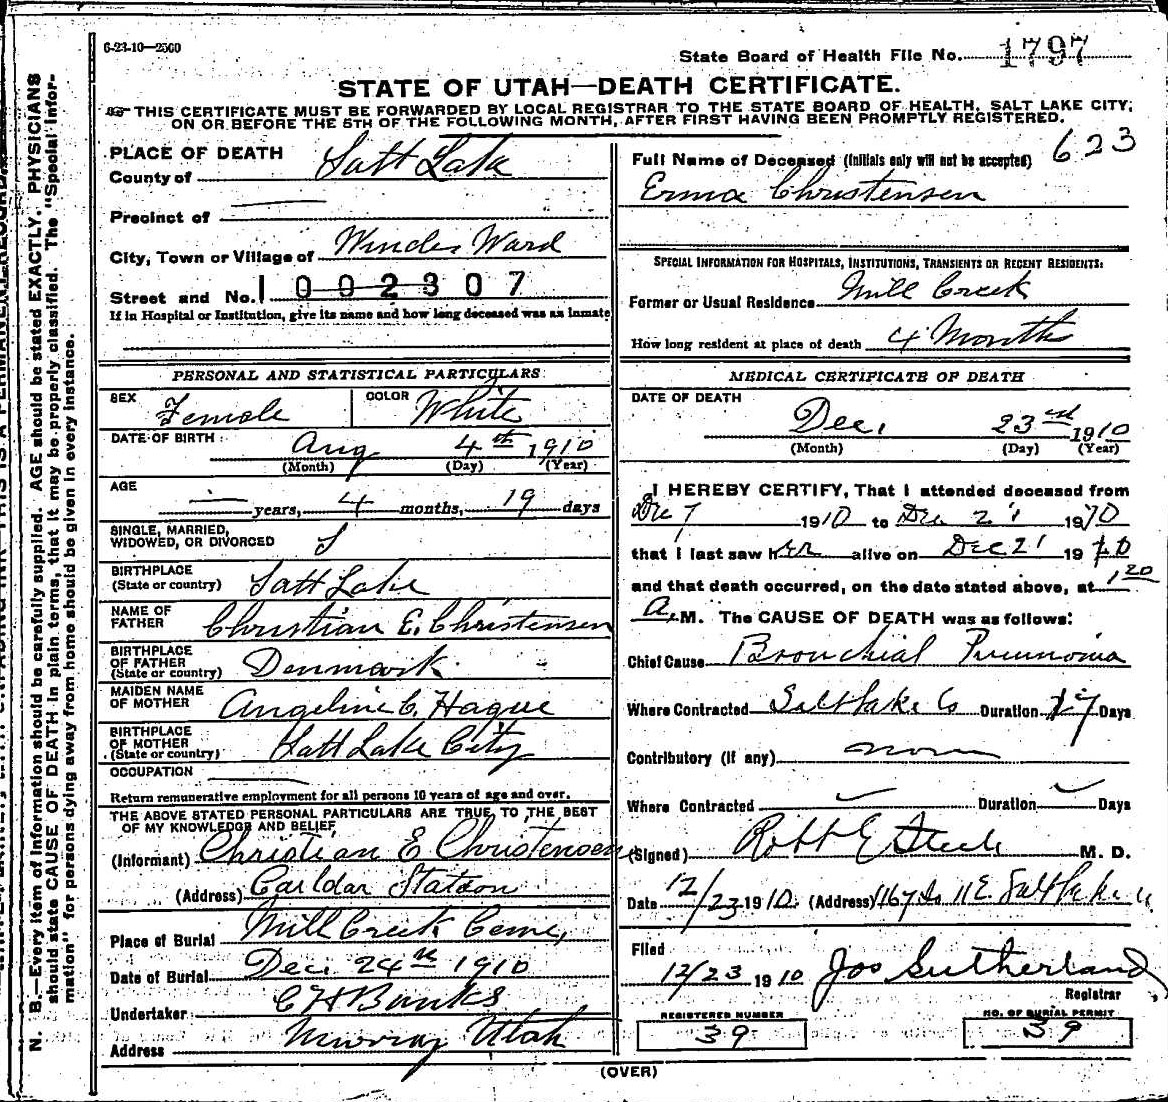 6-23-10—2500
State Board of Health File No. 1797
STATE OF UTAH—DEATH CERTIFICATE.
THIS CERTIFICATE MUST BE FORWARDED BY LOCAL REGISTRAR TO THE STATE BOARD OF HEALTH, SALT LAKE CITY,
ON OR BEFORE THE 5TH OF THE FOLLOWING MONTH, AFTER FIRST HAVING BEEN PROMPTLY REGISTERED.
PLACE OF DEATH
County of Salt Lake
Precinct of
City, Town or Village of Winder Ward
Street and No. 1002307
If in Hospital or Institution, give its name and how long deceased was an inmate
PERSONAL AND STATISTICAL PARTICULARS
SEX Female COLOR White
DATE OF BIRTH Aug 4th 1910
(Month) (Day) (Year)
AGE
— years, 4 months, 19 days
SINGLE, MARRIED,
WIDOWED, OR DIVORCED S
BIRTHPLACE
(State or country) Salt Lake
NAME OF
FATHER Christian E. Christensen
BIRTHPLACE
OF FATHER
(State or country) Denmark
MAIDEN NAME
OF MOTHER Angeline C. Hague
BIRTHPLACE
OF MOTHER
(State or country) Salt Lake City
OCCUPATION
Return remunerative employment for all persons 10 years of age and over.
THE ABOVE STATED PERSONAL PARTICULARS ARE TRUE TO THE BEST
OF MY KNOWLEDGE AND BELIEF
(Informant) Christian E Christensen
(Address) Station
Place of Burial Mill Creek Ceme,
Date of Burial Dec. 24th 1910
Undertaker C H Banks
Address Murray Utah
623
Full Name of Deceased (Initials only will not be accepted)
Erma Christensen
SPECIAL INFORMATION FOR HOSPITALS, INSTITUTIONS, TRANSIENTS OR RECENT RESIDENTS:
Former or Usual Residence Mill Creek
How long resident at place of death 4 Months
MEDICAL CERTIFICATE OF DEATH
DATE OF DEATH
Dec. 23rd 1910
(Month) (Day) (Year)
I HEREBY CERTIFY, That I attended deceased from
Dec 7 1910 to Dec 21 1910
that I last saw her alive on Dec 21 1910
and that death occurred, on the date stated above, at 1 20
A. M. The CAUSE OF DEATH was as follows:
Chief Cause Bronchial Pneumonia
Where Contracted Salt Lake Co Duration 17 Days
Contributory (if any) none
Where Contracted Duration Days
(Signed) Robt E Steele M. D.
Date 12/23 1910. (Address) 167 So 11 E. Salt Lake
Filed
12/23 1910 Jos Sutherland
Registrar
REGISTERED NUMBER
39
NO. OF BURIAL PERMIT
39
(OVER)
N. B.—Every item of information should be carefully supplied. AGE should be stated EXACTLY. PHYSICIANS
should state CAUSE OF DEATH in plain terms, that it may be properly classified. The "Special Infor-
mation" for persons dying away from home should be given in every instance.